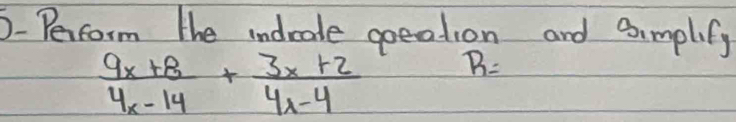 5- Perform the indicate operation and Simplify
9x+8 / 4x-14 + 3x+2 / 4x-4 R=